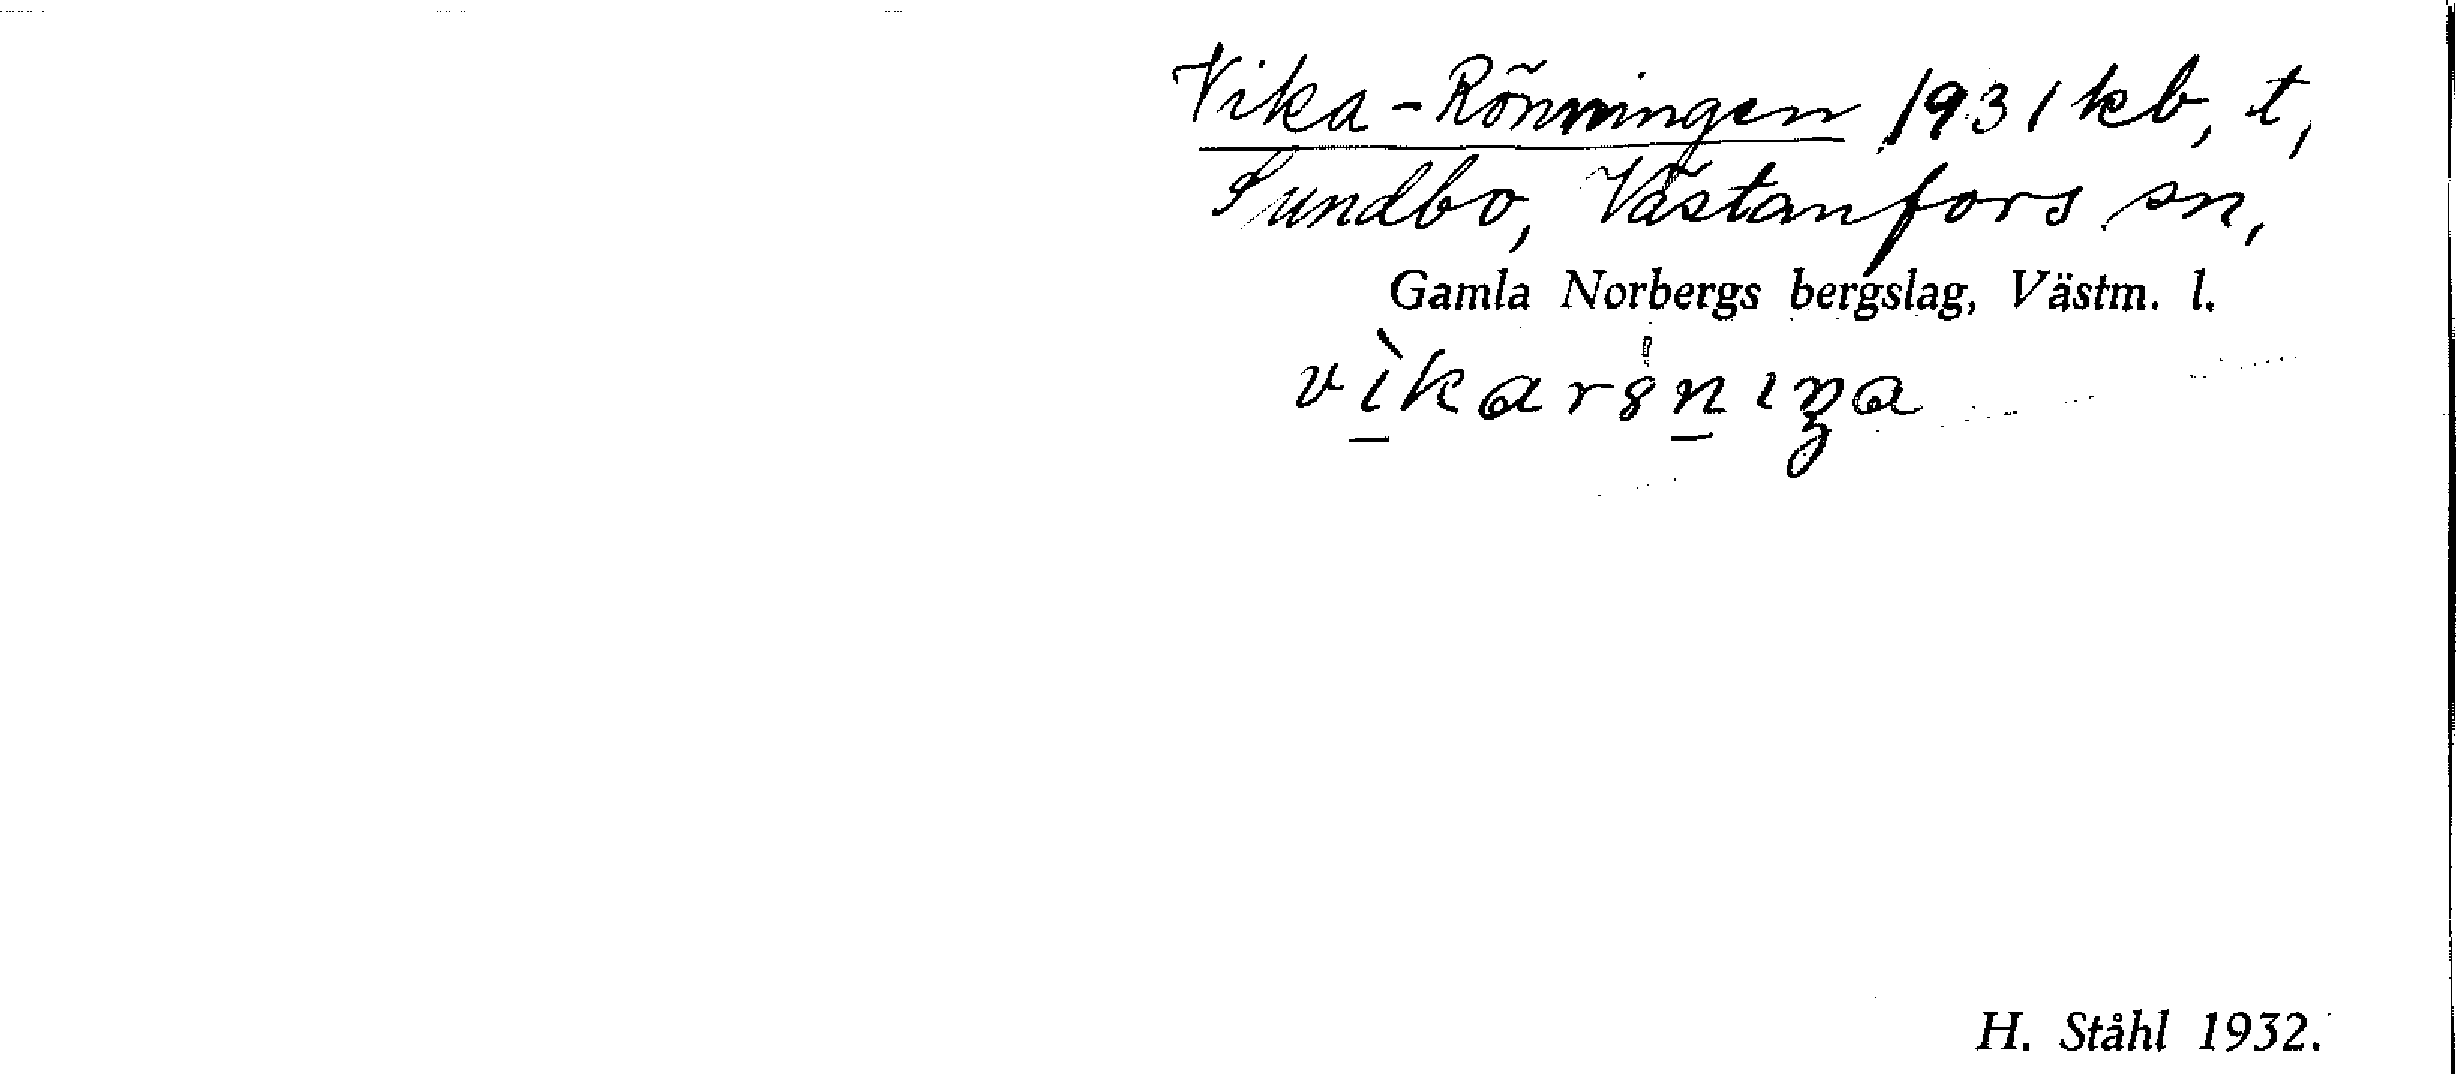 Vika-Rönningen 1931 kb, t,
Sundbo, Västanfors sn,
Gamla Norbergs bergslag, Västm. l.
H. Ståhl 1932.